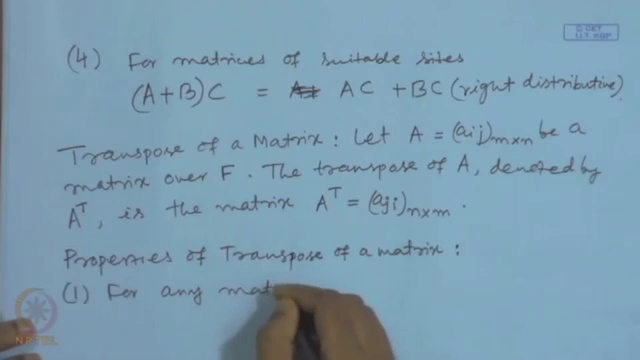 © CET
I.I.T. KGP
(4) For matrices of suitable sizes
(A+B)C = AC + BC (right distributive)
Transpose of a Matrix : Let A = (aij)m×n be a
matrix over F. The transpose of A, denoted by
A^T, is the matrix A^T = (aji)n×m.
Properties of Transpose of a matrix :
(1) For any mat
NPTEL